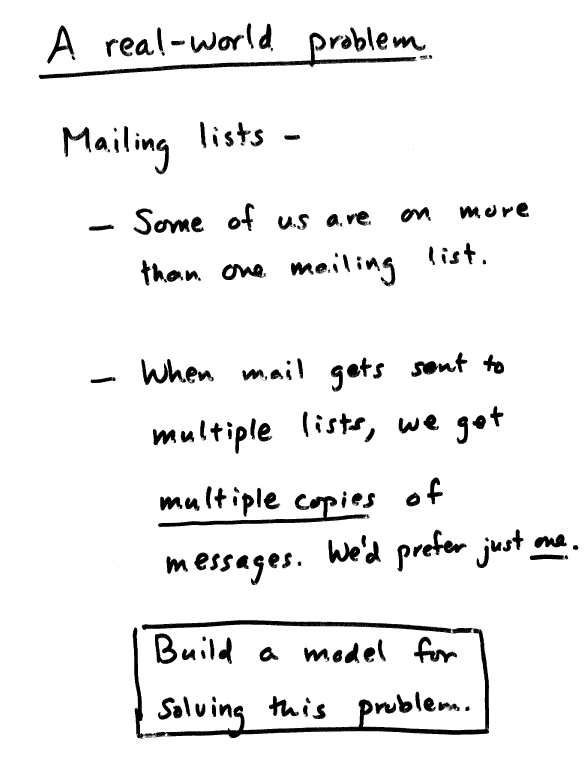 A real-world problem
Mailing lists -
- Some of us are on more
than one mailing list.
- When mail gets sent to
multiple lists, we get
multiple copies of
messages. We'd prefer just one.
Build a model for
solving this problem.